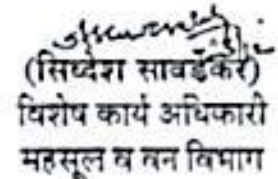 (सिध्देश सावर्डेकर)
विशेष कार्य अधिकारी
महसूल व वन विभाग